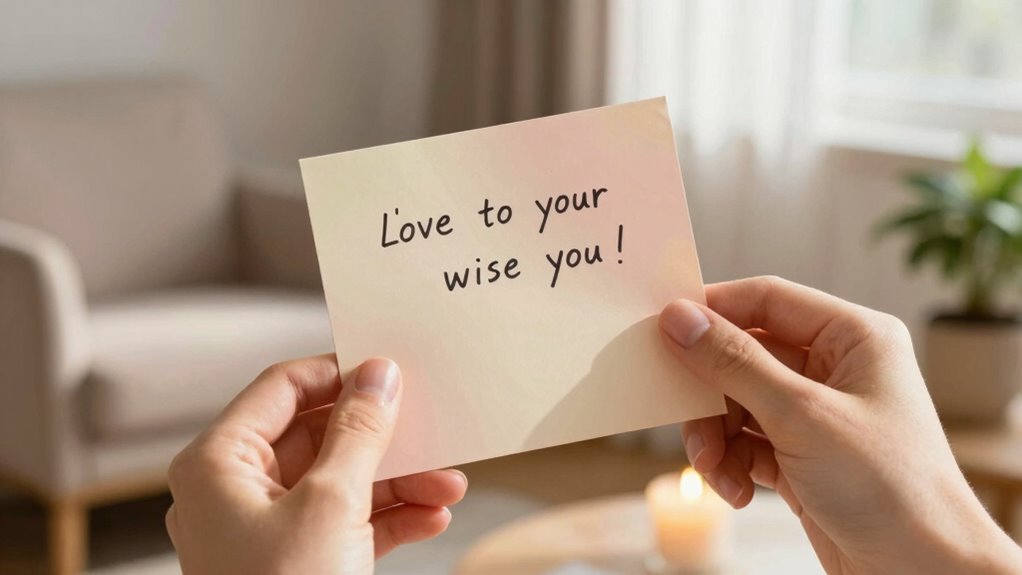 Love to your
wise you!